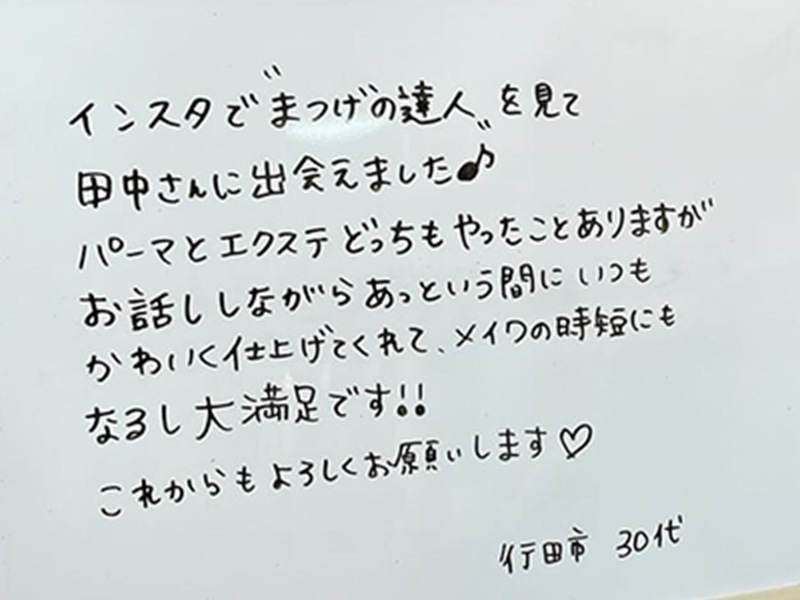 インスタで“まつげの達人”を見て
田中さんに出会えました♪
パーマとエクステどっちもやったことありますが
お話ししながらあっという間にいつも
かわいく仕上げてくれて、メイクの時短にも
なるし大満足です!!
これからもよろしくお願いします♡
行田市 30代